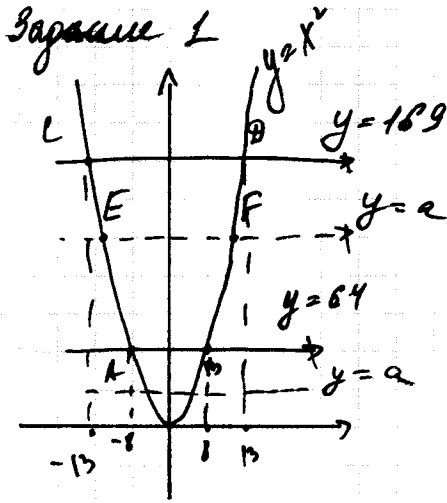 Задание 1
y=x²
C
D
y=169
E
F
y=a
y=64
A
B
y=a
-13
-8
8
13